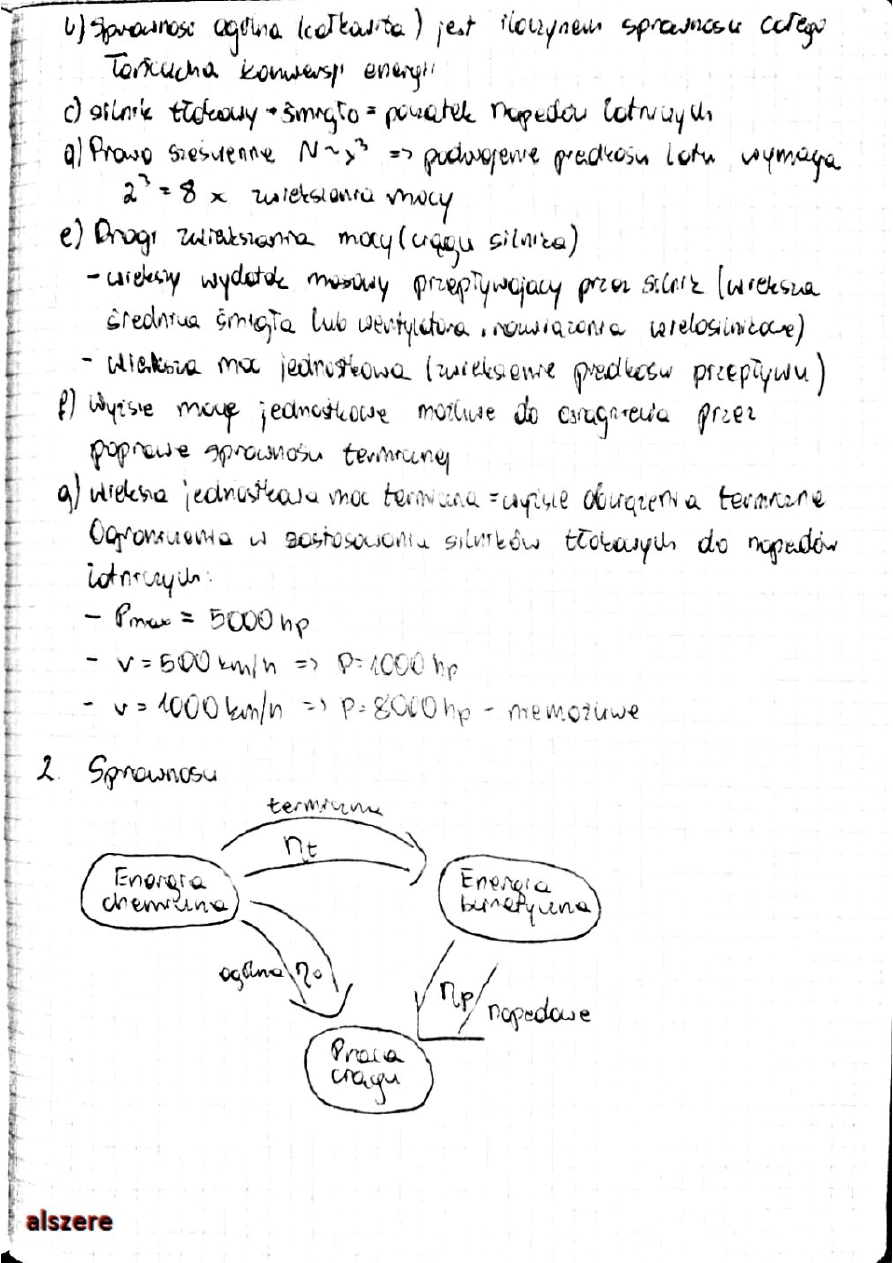 b) Sprawność ogólna (całkowita) jest iloczynem sprawności całego
łańcucha konwersji energii
c) silnik tłokowy + śmigło = początek napędów lotniczych
d) Prawo sześcienne N ~ x³ => podwojenie prędkości lotu wymaga
2³ = 8 x zwiększania mocy
e) Drogi zwiększania mocy (ciągu silnika)
- większy wydatek masowy przepływający przez silnik (większa
średnica śmigła lub wentylatora, rozwiązania wielosilnikowe)
- większa moc jednostkowa (zwiększenie prędkości przepływu)
f) Wyższe moce jednostkowe możliwe do osiągnięcia przez
poprawę sprawności termicznej
g) większa jednostkowa moc termiczna = wyższe obciążenia termiczne
Ograniczenia w zastosowaniu silników tłokowych do napędów
lotniczych:
- Pmax = 5000 hp
- v = 500 km/h => P = 1000 hp
- v = 1000 km/h => P = 8000 hp - niemożliwe
2. Sprawności
termiczna
ηt
Energia
chemiczna
Energia
kinetyczna
ogólna ηo
ηp
napędowe
Praca
ciągu
alszere